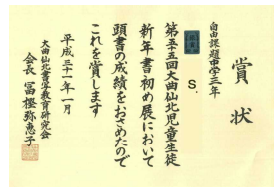 賞状
自由課題中学三年
S.
第五十五回大曲仙北児童生徒
新年書初め展において
頭書の成績をおさめたので
これを賞します
平成三十一年一月
大曲仙北書写教育研究会
会長 冨樫弥恵子